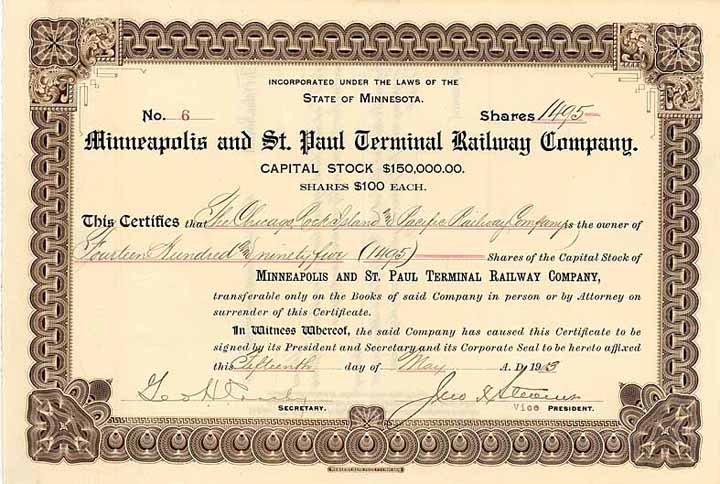 INCORPORATED UNDER THE LAWS OF THE
STATE OF MINNESOTA.
No. 6 Shares 1495
Minneapolis and St. Paul Terminal Railway Company.
CAPITAL STOCK $150,000.00.
SHARES $100 EACH.
This Certifies that The Chicago, Rock Island and Pacific Railway Company is the owner of
Fourteen Hundred and ninety five (1495) Shares of the Capital Stock of
MINNEAPOLIS AND ST. PAUL TERMINAL RAILWAY COMPANY,
transferable only on the Books of said Company in person or by Attorney on
surrender of this Certificate.
In Witness Whereof, the said Company has caused this Certificate to be
signed by its President and Secretary and its Corporate Seal to be hereto affixed
this Fifteenth day of May A. D. 1913
Geo H Crosby Jno J Stevens
SECRETARY. Vice PRESIDENT.